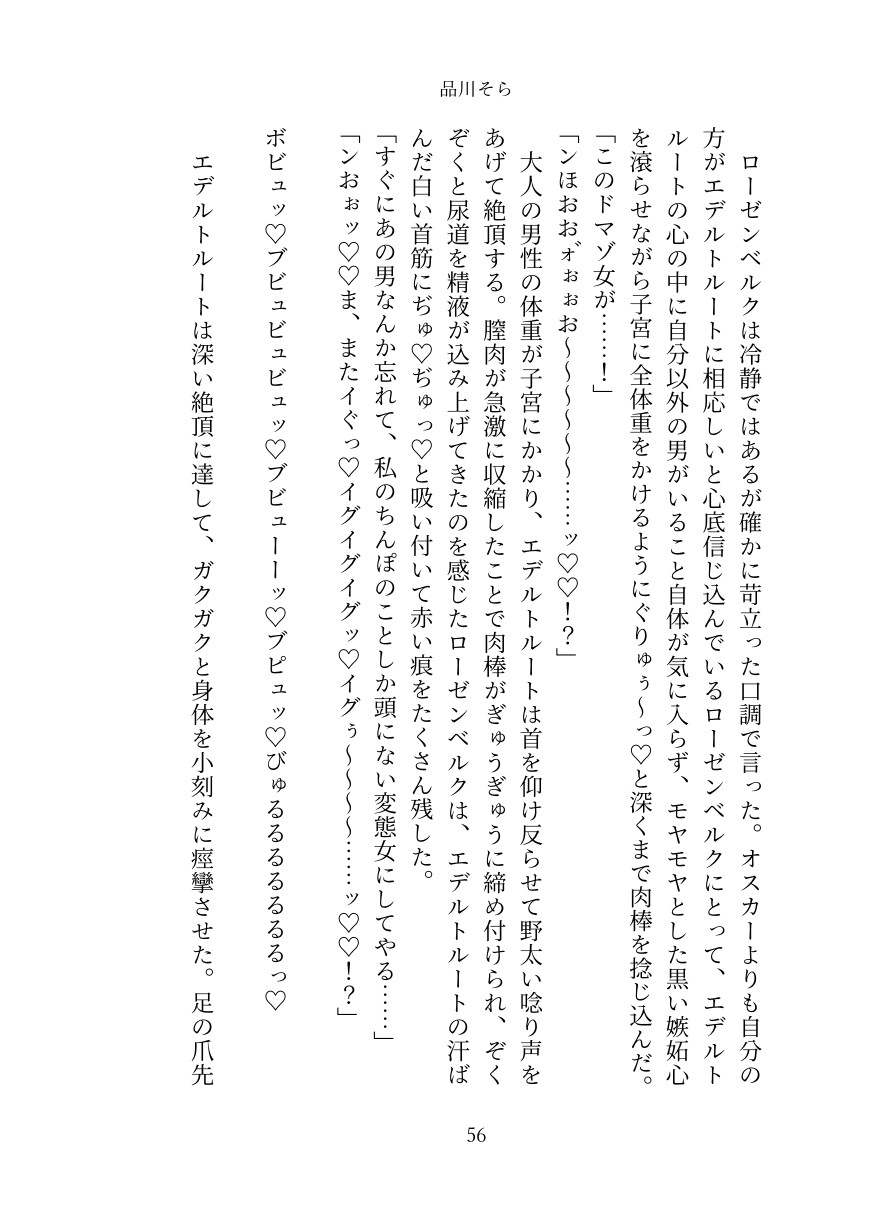 品川そら
　ローゼンベルクは冷静ではあるが確かに苛立った口調で言った。オスカーよりも自分の
方がエデルトルートに相応しいと心底信じ込んでいるローゼンベルクにとって、エデルト
ルートの心の中に自分以外の男がいること自体が気に入らず、モヤモヤとした黒い嫉妬心
を滾らせながら子宮に全体重をかけるようにぐりゅぅ～っ♡と深くまで肉棒を捻じ込んだ。
「このドマゾ女が……！」
「ンほおおォ゛ぉぉお～～～～～～……ッ♡♡！？」
　大人の男性の体重が子宮にかかり、エデルトルートは首を仰け反らせて野太い唸り声を
あげて絶頂する。膣肉が急激に収縮したことで肉棒がぎゅうぎゅうに締め付けられ、ぞく
ぞくと尿道を精液が込み上げてきたのを感じたローゼンベルクは、エデルトルートの汗ば
んだ白い首筋にぢゅ♡ぢゅっ♡と吸い付いて赤い痕をたくさん残した。
「すぐにあの男なんか忘れて、私のちんぽのことしか頭にない変態女にしてやる……」
「ンおぉッ♡♡ま、またイぐっ♡イグイグイグッ♡イグぅ～～～～……ッ♡♡！？」
ボビュッ♡ブビュビュビュッ♡ブビューーッ♡ブピュッ♡びゅるるるるるるるっ♡
　エデルトルートは深い絶頂に達して、ガクガクと身体を小刻みに痙攣させた。足の爪先
56